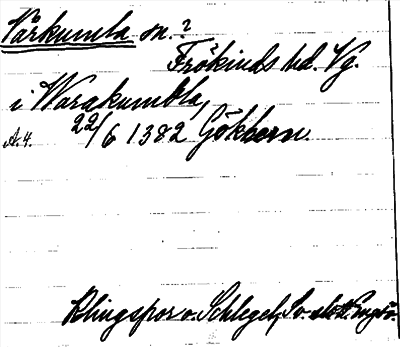 Vårkumla sn.?
Frökinds hd. Vg.
i Warakumbla,
A.4. 22/6 1382 Gökhem.
Klingspor o. Schlegel, Sv. slott